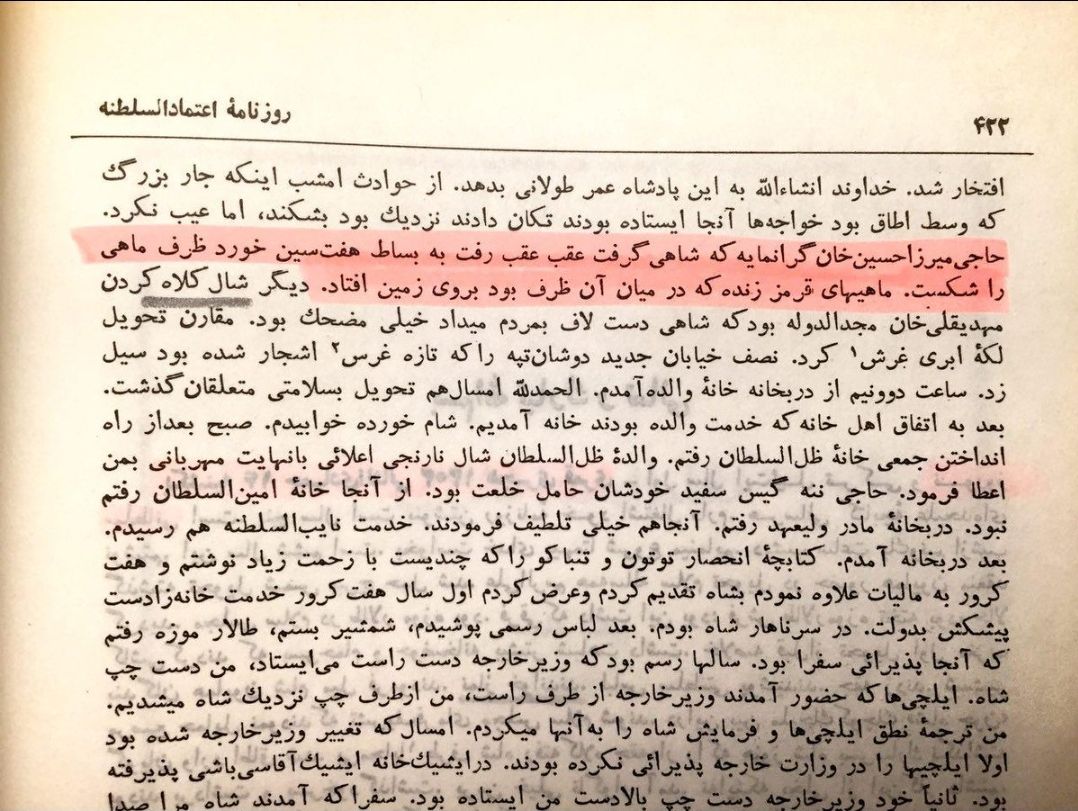 ۴۲۲
روزنامهٔ اعتمادالسلطنه
افتخار شد. خداوند انشاءالله به این پادشاه عمر طولانی بدهد. از حوادث امشب اینکه جار بزرگ
که وسط اطاق بود خواجه‌ها آنجا ایستاده بودند تکان دادند نزدیك بود بشکند، اما عیب نکرد.
حاجی‌میرزاحسین‌خان گرانمایه که شاهی گرفت عقب عقب رفت به بساط هفت‌سین خورد ظرف ماهی
را شکست. ماهیهای قرمز زنده که در میان آن ظرف بود بروی زمین افتاد. دیگر شال کلاه کردن
مهدیقلی‌خان مجدالدوله بود که شاهی دست لاف بمردم میداد خیلی مضحك بود. مقارن تحویل
لکهٔ ابری غرش۱ کرد. نصف خیابان جدید دوشان‌تپه را که تازه غرس۲ اشجار شده بود سیل
زد. ساعت دوونیم از دربخانه خانهٔ والده آمدم. الحمدلله امسال‌هم تحویل بسلامتی متعلقان گذشت.
بعد به اتفاق اهل خانه که خدمت والده بودند خانه آمدیم. شام خورده خوابیدم. صبح بعداز راه
انداختن جمعی خانهٔ ظل‌السلطان رفتم. والدهٔ ظل‌السلطان شال نارنجی اعلائی بانهایت مهربانی بمن
اعطا فرمود. حاجی ننه گیس سفید خودشان حامل خلعت بود. از آنجا خانهٔ امین‌السلطان رفتم
نبود. دربخانهٔ مادر ولیعهد رفتم. آنجاهم خیلی تلطیف فرمودند. خدمت نایب‌السلطنه هم رسیدم.
بعد دربخانه آمدم. کتابچهٔ انحصار توتون و تنباکو راکه چندیست با زحمت زیاد نوشتم و هفت
کرور به مالیات علاوه نمودم بشاه تقدیم کردم وعرض کردم اول سال هفت کرور خدمت خانه‌زادست
پیشکش بدولت. در سرناهار شاه بودم. بعد لباس رسمی پوشیدم، شمشیر بستم، طالار موزه رفتم
که آنجا پذیرائی سفرا بود. سالها رسم بود که وزیرخارجه دست راست می‌ایستاد، من دست چپ
شاه. ایلچی‌ها که حضور آمدند وزیرخارجه از طرف راست، من ازطرف چپ نزدیك شاه میشدیم.
من ترجمهٔ نطق ایلچی‌ها و فرمایش شاه را به‌آنها میکردم. امسال‌که تغییر وزیرخارجه شده بود
اولا ایلچیها را در وزارت خارجه پذیرائی نکرده بودند. درایشیك‌خانه ایشیك‌آقاسی‌باشی پذیرفته
بود. ثانیاً خود وزیرخارجه دست چپ بالادست من ایستاده بود. سفراکه آمدند شاه مرا صدا